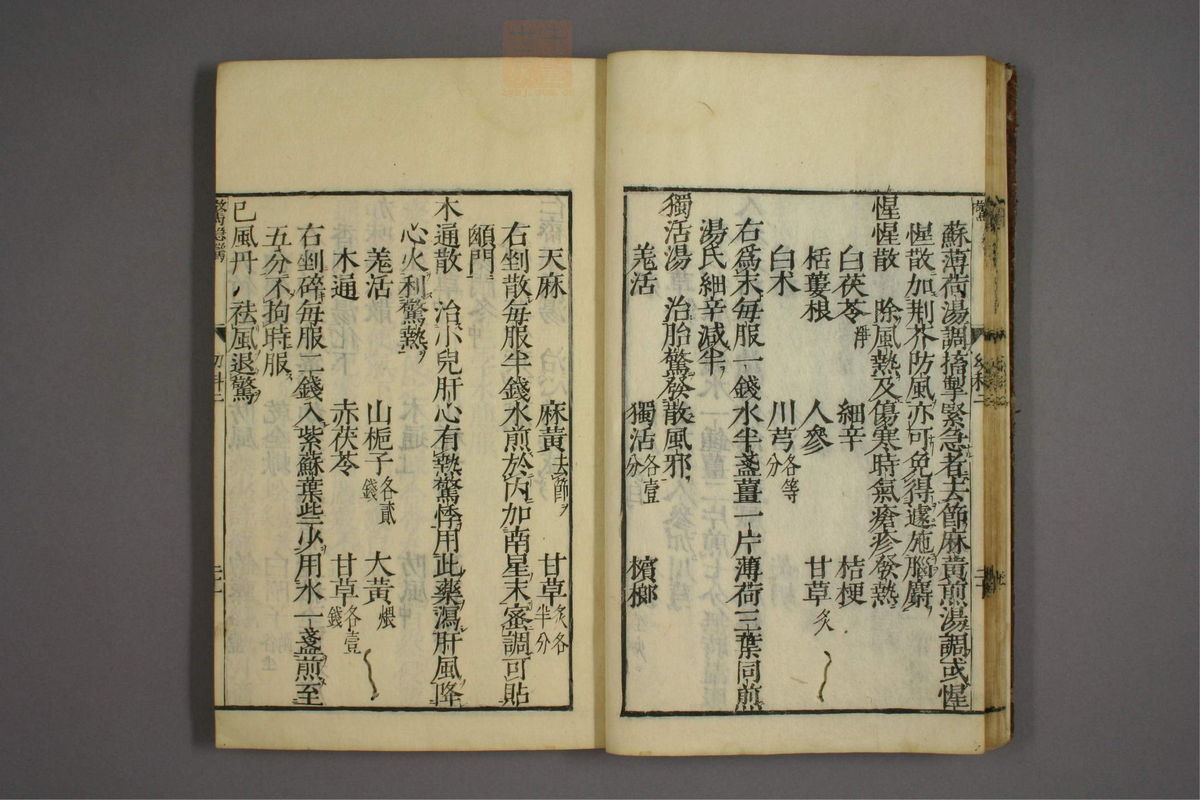 蘇薄荷湯調搐掣緊急者去節麻黄煎湯調或惺
惺散加荆芥防風亦可免得遽施腦麝
惺惺散　除風熱及傷寒時氣瘡疹發熱
白茯苓　細辛　桔梗
栝蔞根　人參　甘草炙
白术　川芎各等分
右爲末每服一錢水半盞薑一片薄荷三葉同煎
湯氏細辛減半
獨活湯　治胎驚發散風邪
羌活　獨活各壹分　檳榔
天麻　麻黄去節　甘草炙各半分
右剉散每服半錢水煎於内加南星末蜜調可貼
顖門
木通散　治小兒肝心有熱驚悸用此藥瀉肝風降
心火利驚熱
羌活　山梔子各貳錢　大黄煨
木通　赤茯苓　甘草各壹錢
右剉碎每服二錢入紫蘇葉些少用水一盞煎至
五分不拘時服
巳風丹　祛風退驚